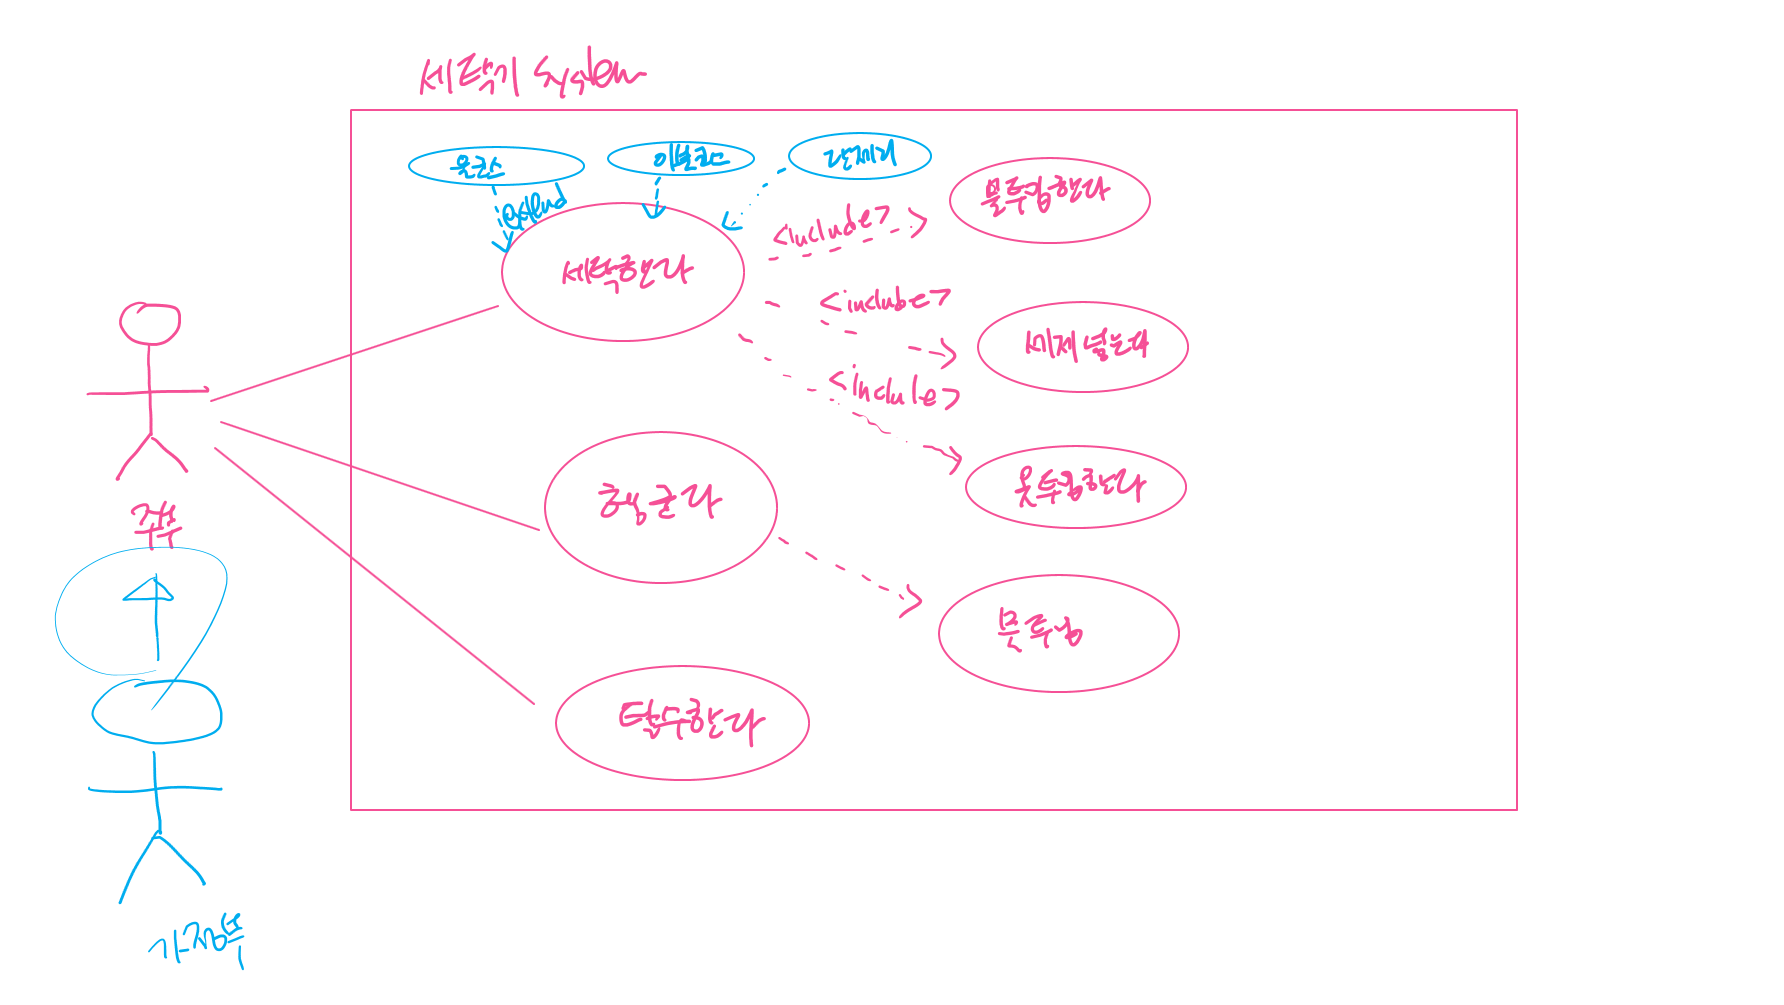 세탁기 System
울코스
이불코스
란제리
extend
세탁한다
<include>
물투입한다
<include>
세제 넣는다
<include>
옷투입한다
헹군다
물투입
탈수한다
주부
가정부